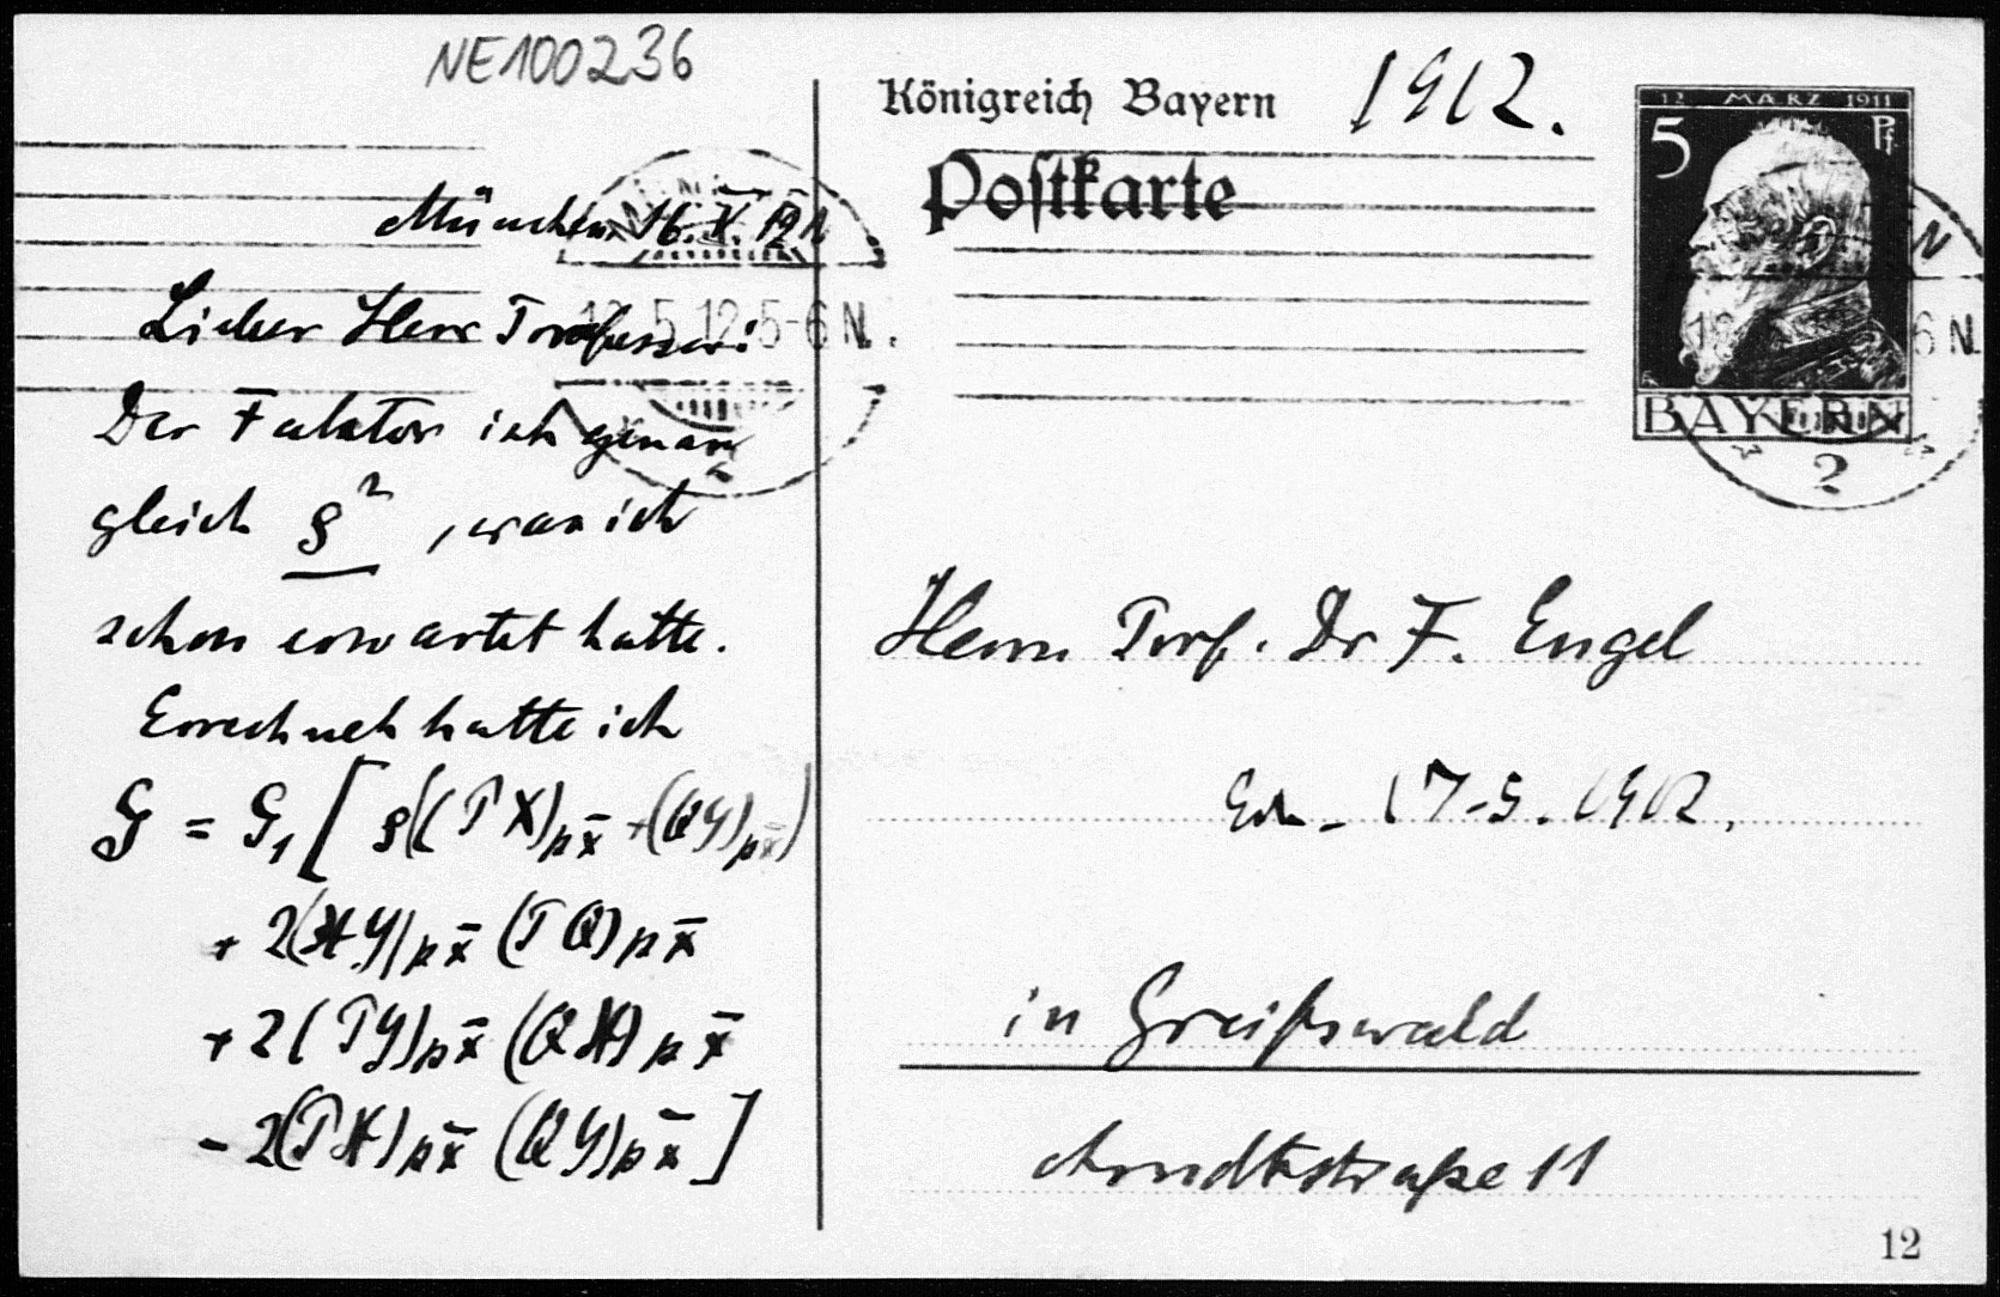 NE100236
München 16.V.12
Lieber Herr Professor!
Der Faktor ist genau
gleich ρ², was ich
schon erwartet hatte.
Errechnet hatte ich
G = G₁ [ ρ((PX)px̄ + (QY)px̄)
+ 2(XY)px̄ (PQ)px̄
+ 2(PY)px̄ (QX)px̄
- 2(PX)px̄ (QY)px̄ ]
Königreich Bayern 1912.
Postkarte
12 MÄRZ 1911
5 Pf
BAYERN
12.5.12.5-6 N.
6 N.
2
Herrn Prof. Dr F. Engel
17-5. 1912.
in Greifswald
Arndtstraße 11
12